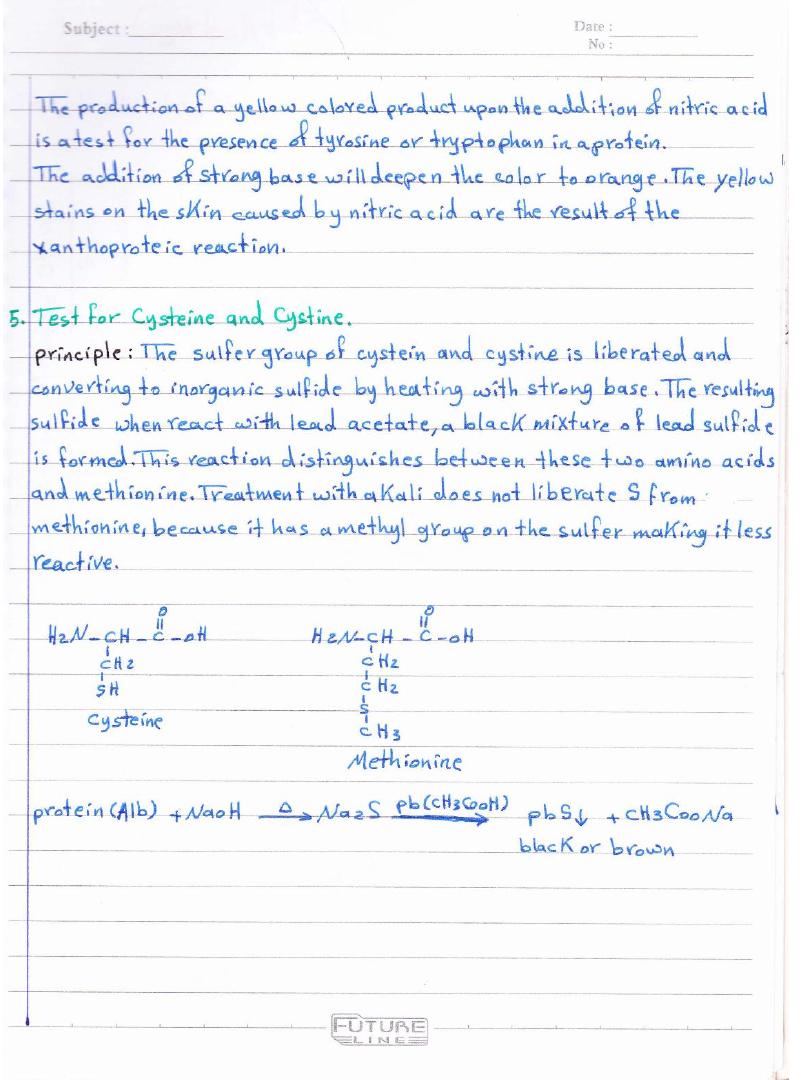 Subject :
Date :
No :
The production of a yellow colored product upon the addition of nitric acid
is a test for the presence of tyrosine or tryptophan in a protein.
The addition of strong base will deepen the color to orange. The yellow
stains on the skin caused by nitric acid are the result of the
xanthoproteic reaction.
5. Test for Cysteine and Cystine.
principle: The sulfer group of cystein and cystine is liberated and
converting to inorganic sulfide by heating with strong base. The resulting
sulfide when react with lead acetate, a black mixture of lead sulfide
is formed. This reaction distinguishes between these two amino acids
and methionine. Treatment with akali does not liberate S from
methionine, because it has a methyl group on the sulfer making it less
reactive.
O O
H2N-CH-C-OH H2N-CH-C-OH
CH2 CH2
SH CH2
Cysteine S
CH3
Methionine
protein (Alb) + NaOH Δ→ Na2S pb(CH3COOH)→ pbS↓ + CH3COONa
black or brown
FUTURE
LINE